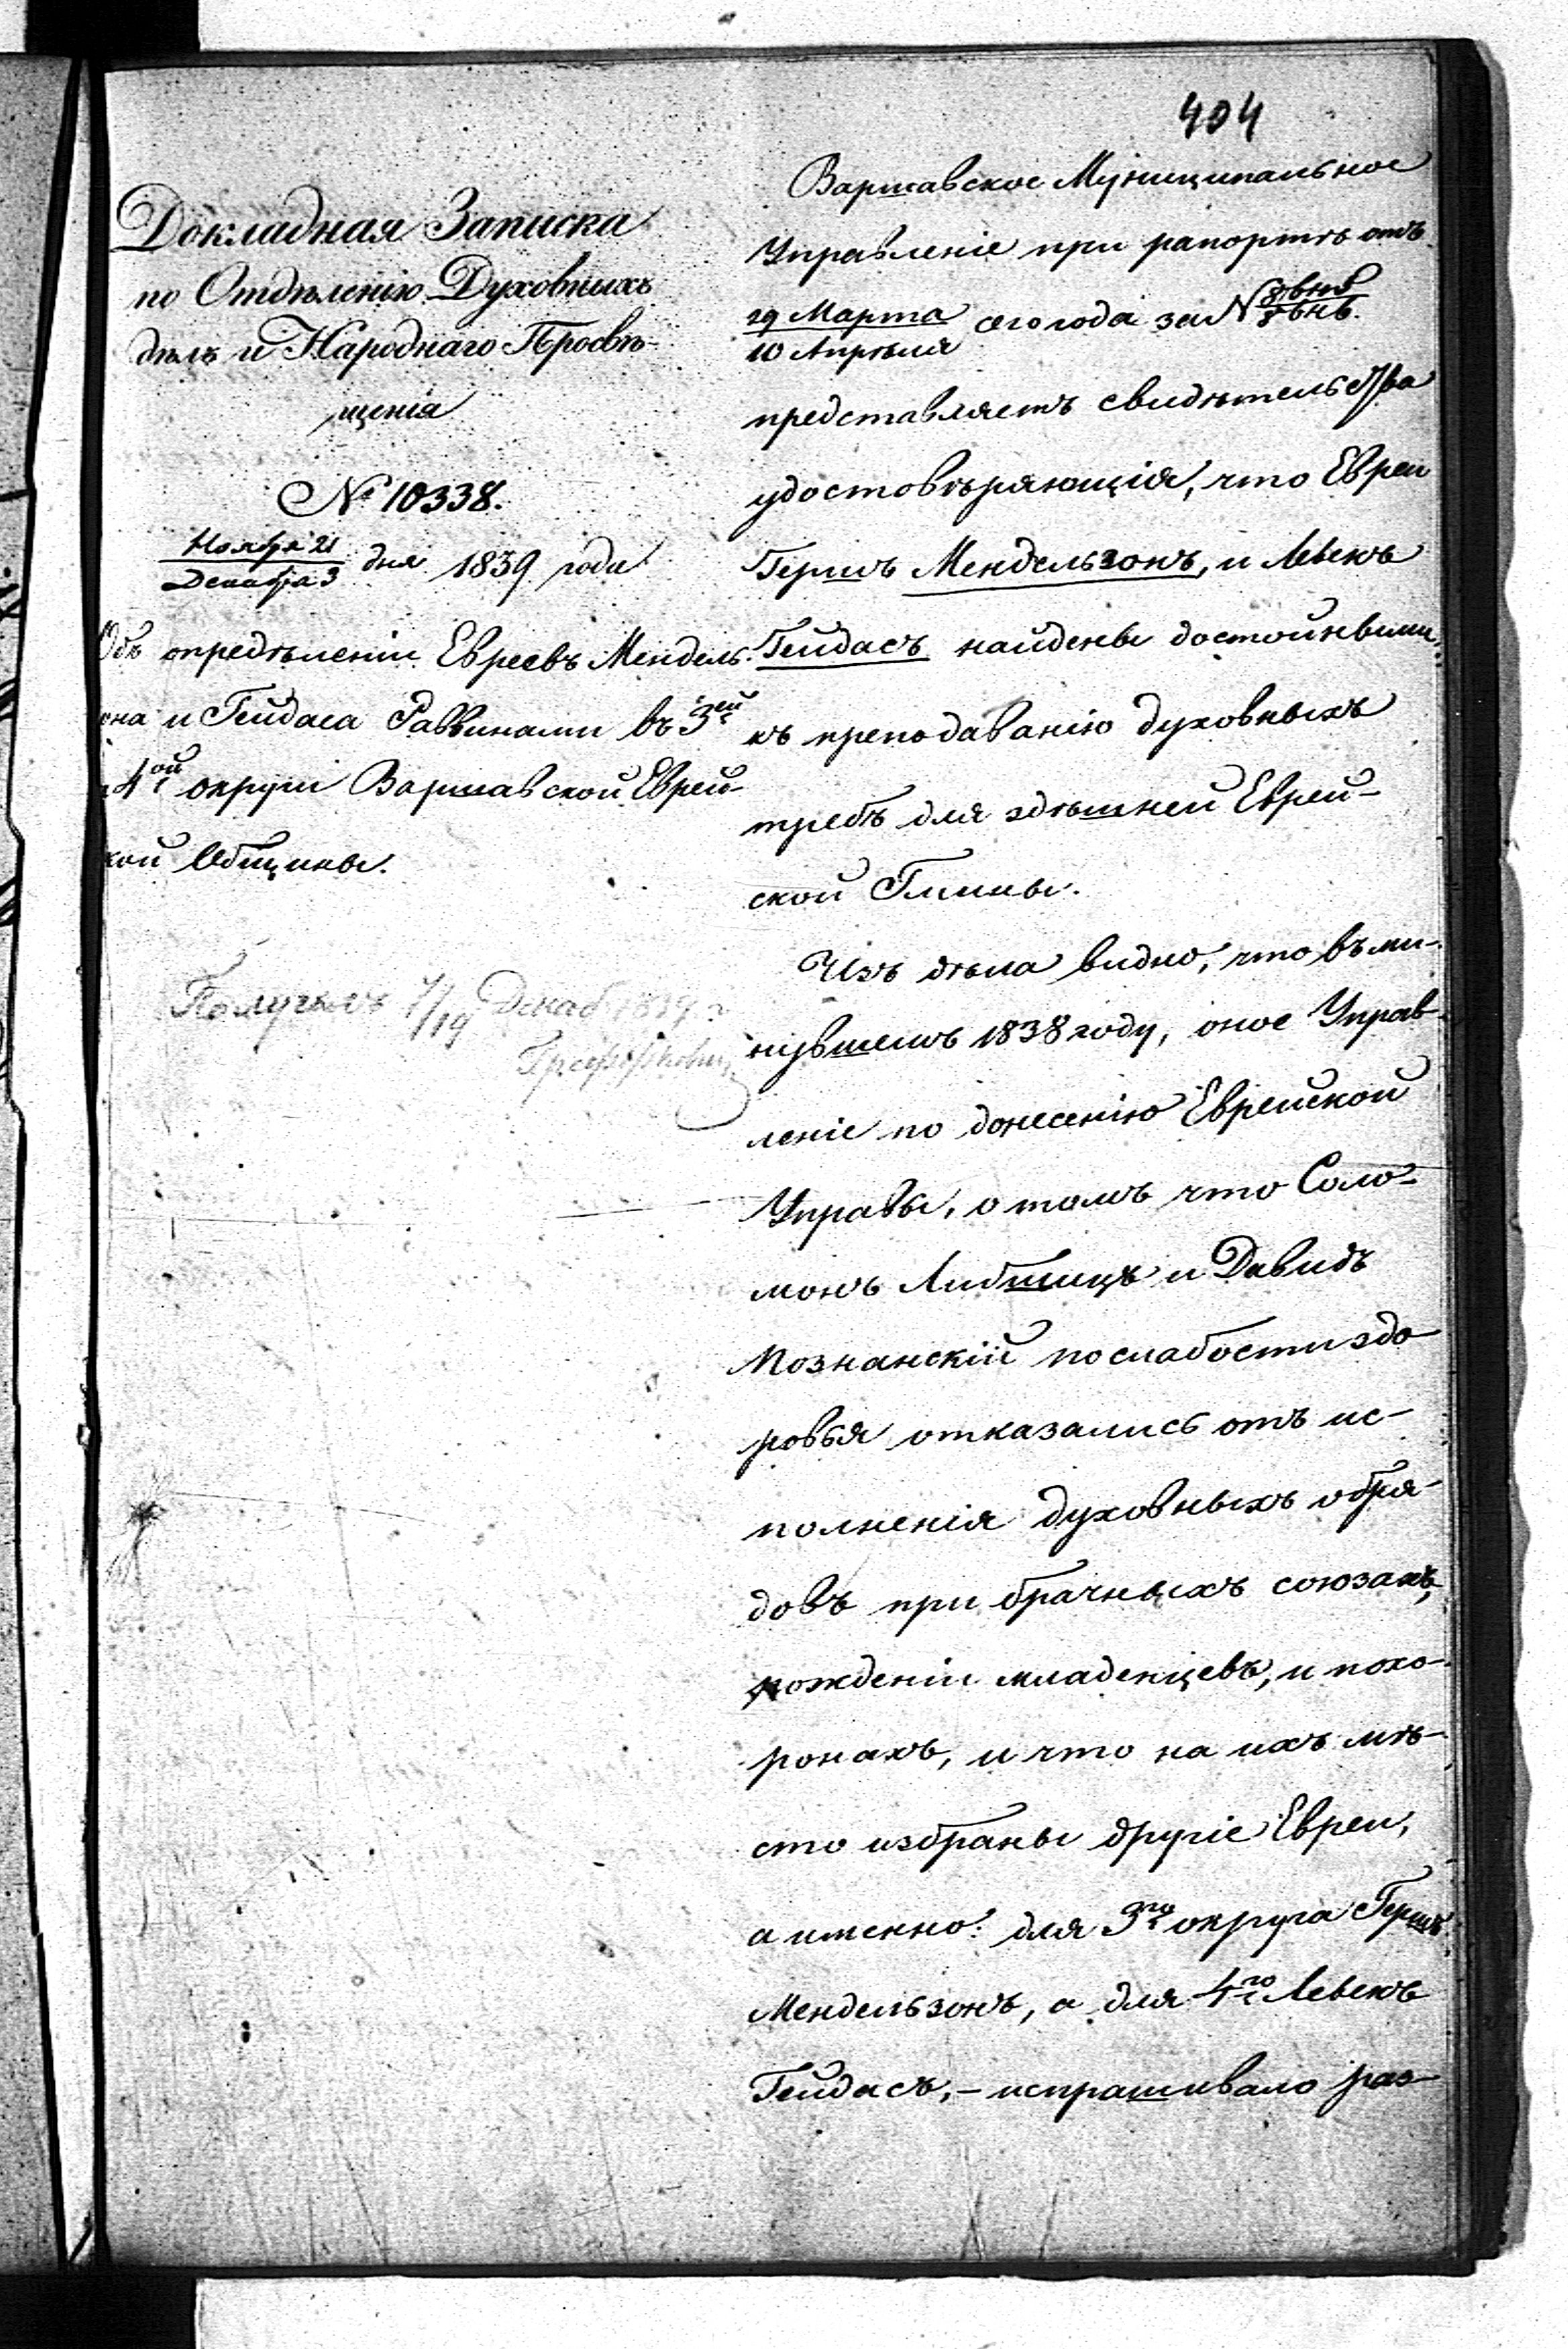 404
Докладная Записка
по Отдѣленію Духовныхъ
дѣлъ и Народнаго Просвѣ-
щенія
№ 10338.
Ноября 21
Декабря 3 дня 1839 года
Объ опредѣленіи Евреевъ Мендель-
она и Гейдаса Раввинами въ 3ей
4ой округи Варшавской Еврей-
кой Общины.
Получилъ 7/19 Декаб 1839 г
Варшавское Муниципальное
Управленіе при рапортѣ отъ
29 Марта
10 Апрѣля сего года за №
представляетъ свидѣтельства
удостовѣряющія, что Евреи
Гершъ Мендельзонъ, и Левекъ
Гейдасъ найдены достойными
къ преподаванію духовныхъ
требъ для здѣшней Еврей-
ской Гмины.
Изъ дѣла видно, что въ ми-
нувшемъ 1838 году, оное Управ-
леніе по донесенію Еврейской
Управы, о томъ что Соло-
монъ Либшицъ и Давидъ
Познанскій по слабости здо-
ровья отказались отъ ис-
полненія духовныхъ обря-
довъ при брачныхъ союзахъ,
рожденіи младенцевъ, и похо-
ронахъ, и что на ихъ мѣ-
сто избраны другіе Евреи,
а именно: для 3го округа Гершъ
Мендельзонъ, а для 4го Левекъ
Гейдасъ, – испрашивало раз-